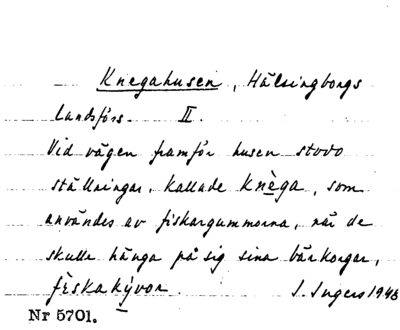 Knegahusen, Hälsingborgs
landsförs. II.
Vid vägen framför husen stodo
ställningar, kallade knèga, som
användes av fiskargummorna, när de
skulle hänga på sig sina bärkorgar,
fèskakývor. I. Ingers 1948
Nr 5701.